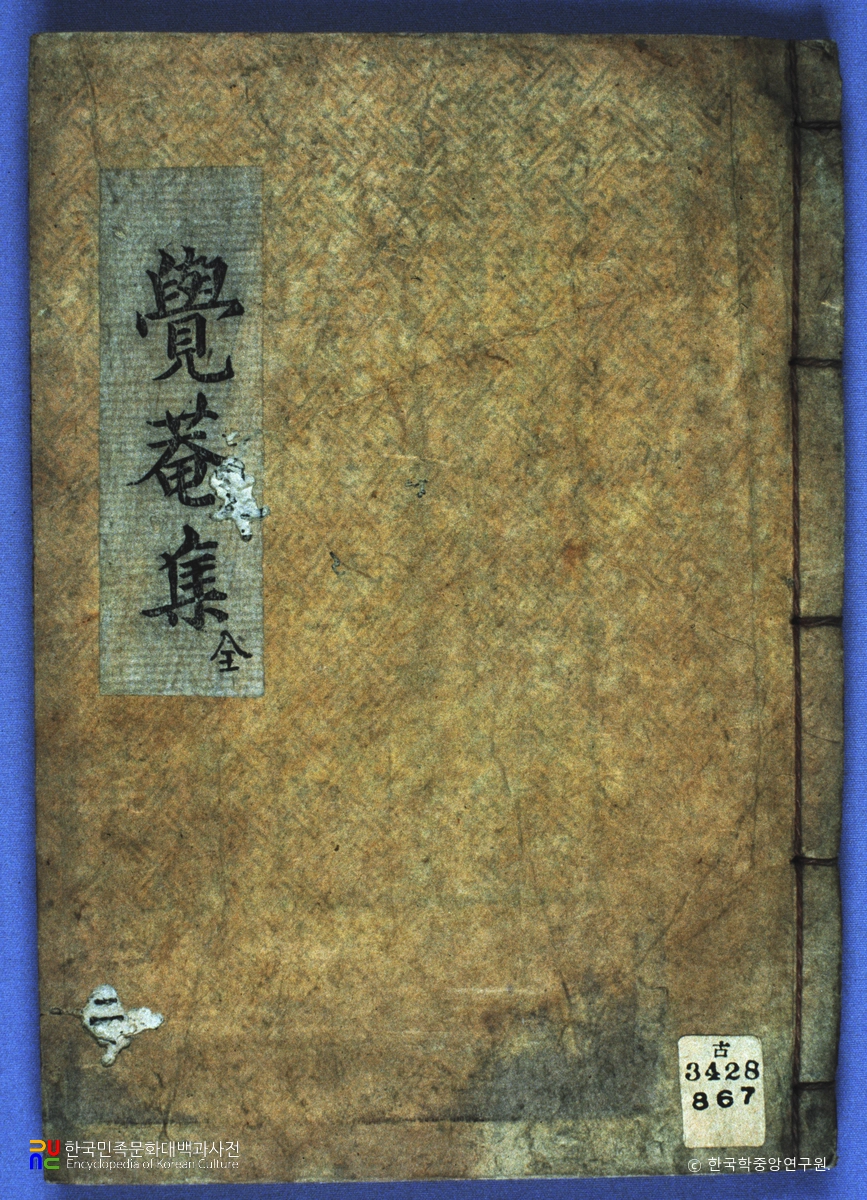 覺菴集
全
古
3428
867
한국민족문화대백과사전
Encyclopedia of Korean Culture
© 한국학중앙연구원